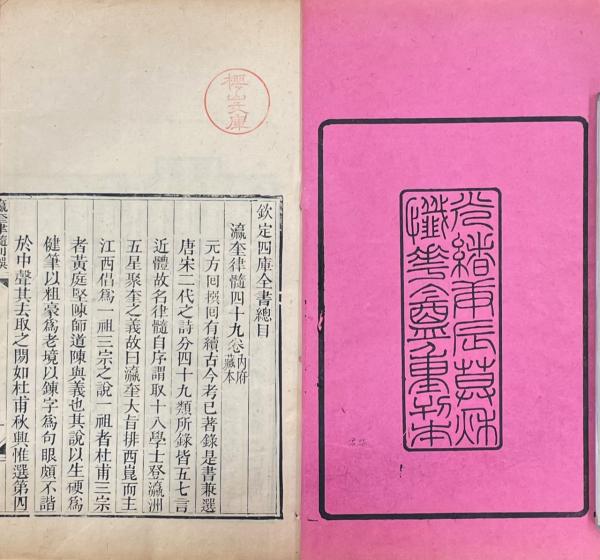 光緒庚辰莫秋
懺華盦重刊本
櫻山文庫
欽定四庫全書總目
瀛奎律髓四十九卷內府藏本
元方回撰回有續古今考已著錄是書兼選
唐宋二代之詩分四十九類所錄皆五七言
近體故名律髓自序謂取十八學士登瀛洲
五星聚奎之義故曰瀛奎大旨排西崑而主
江西倡爲一祖三宗之說一祖者杜甫三宗
者黃庭堅陳師道陳與義也其說以生硬爲
健筆以粗豪爲老境以鍊字爲句眼頗不諧
於中聲其去取之間如杜甫秋興惟選第四
瀛奎律髓刊誤